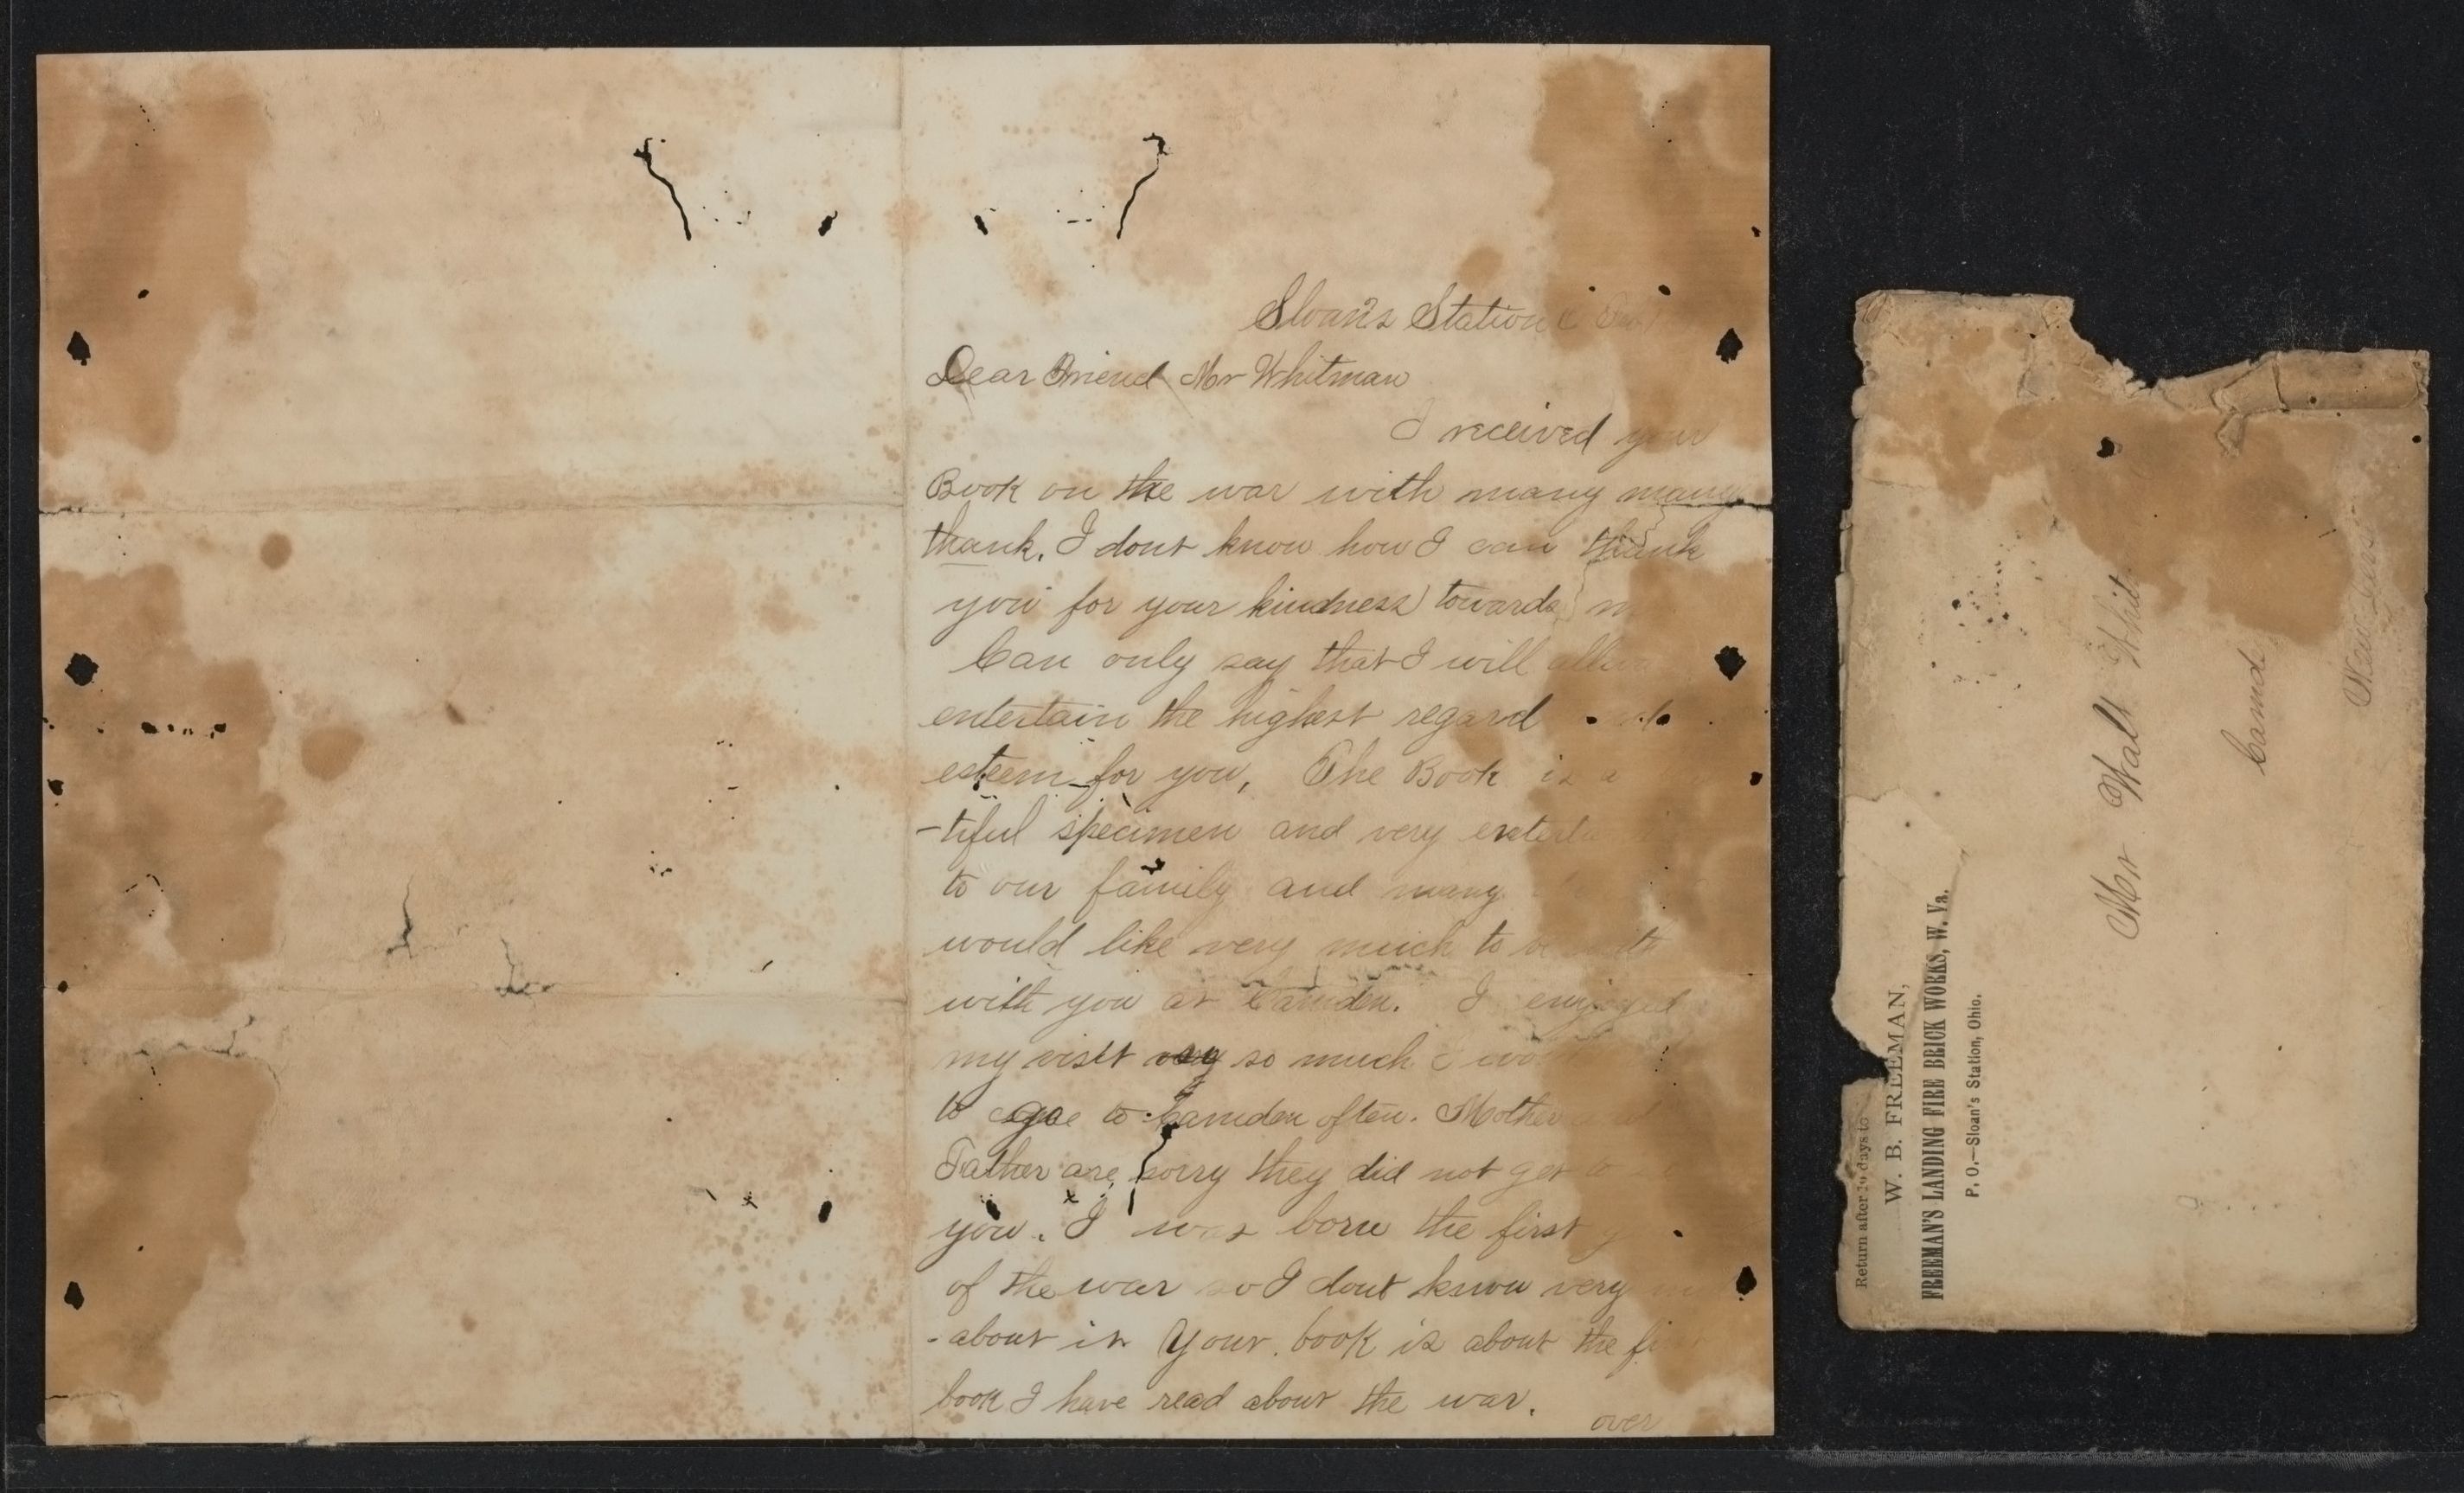 Sloan's Station
Dear Friend Mr Whitman
I received your
Book on the war with many many
thank. I dont know how I can thank
you for your kindness towards
Can only say that I will
entertain the highest regard
esteem for you, The Book is a
-tiful specimen and very
to our family and many
would like very much to
with you at Camden. I enjoyed
my visit so much I
to goe to Camden often. Mother
Father are sorry they did not get to
you. I was born the first
of the war so I dont know very
-about it Your book is about the
book I have read about the war.
over
Return after 10 days to
W. B. FREEMAN,
FREEMAN'S LANDING FIRE BRICK WORKS, W. Va.
P. O.—Sloan's Station, Ohio.
Mr Walt Whit
Camd
New Jers